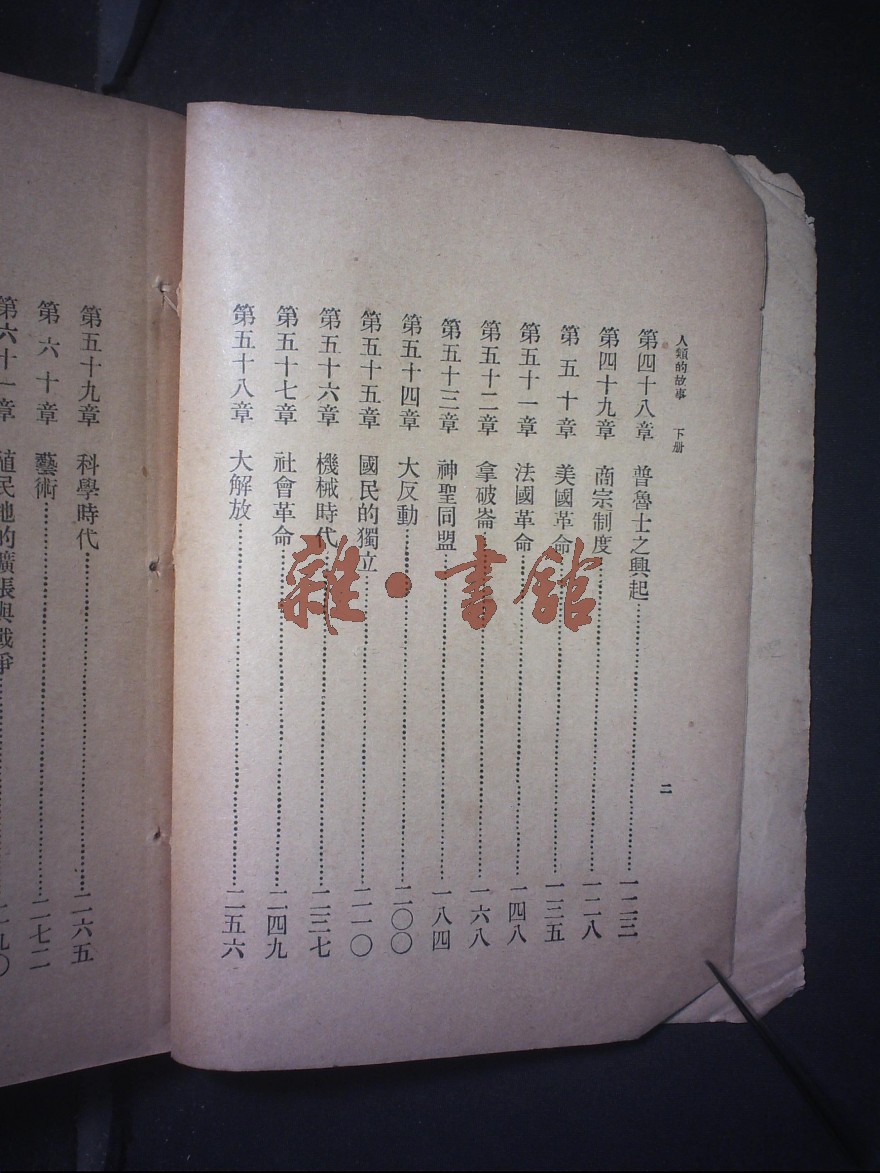 人類的故事 下册
第四十八章 普魯士之興起…………一二三
第四十九章 商宗制度…………一二八
第五十章 美國革命…………一三五
第五十一章 法國革命…………一四八
第五十二章 拿破崙…………一六八
第五十三章 神聖同盟…………一八四
第五十四章 大反動…………二〇〇
第五十五章 國民的獨立…………二一〇
第五十六章 機械時代…………二三七
第五十七章 社會革命…………二四九
第五十八章 大解放…………二五六
二
第五十九章 科學時代…………二六五
第六十章 藝術…………二七二
第六十一章 殖民地的擴張與戰爭…………二九〇
雜·書館